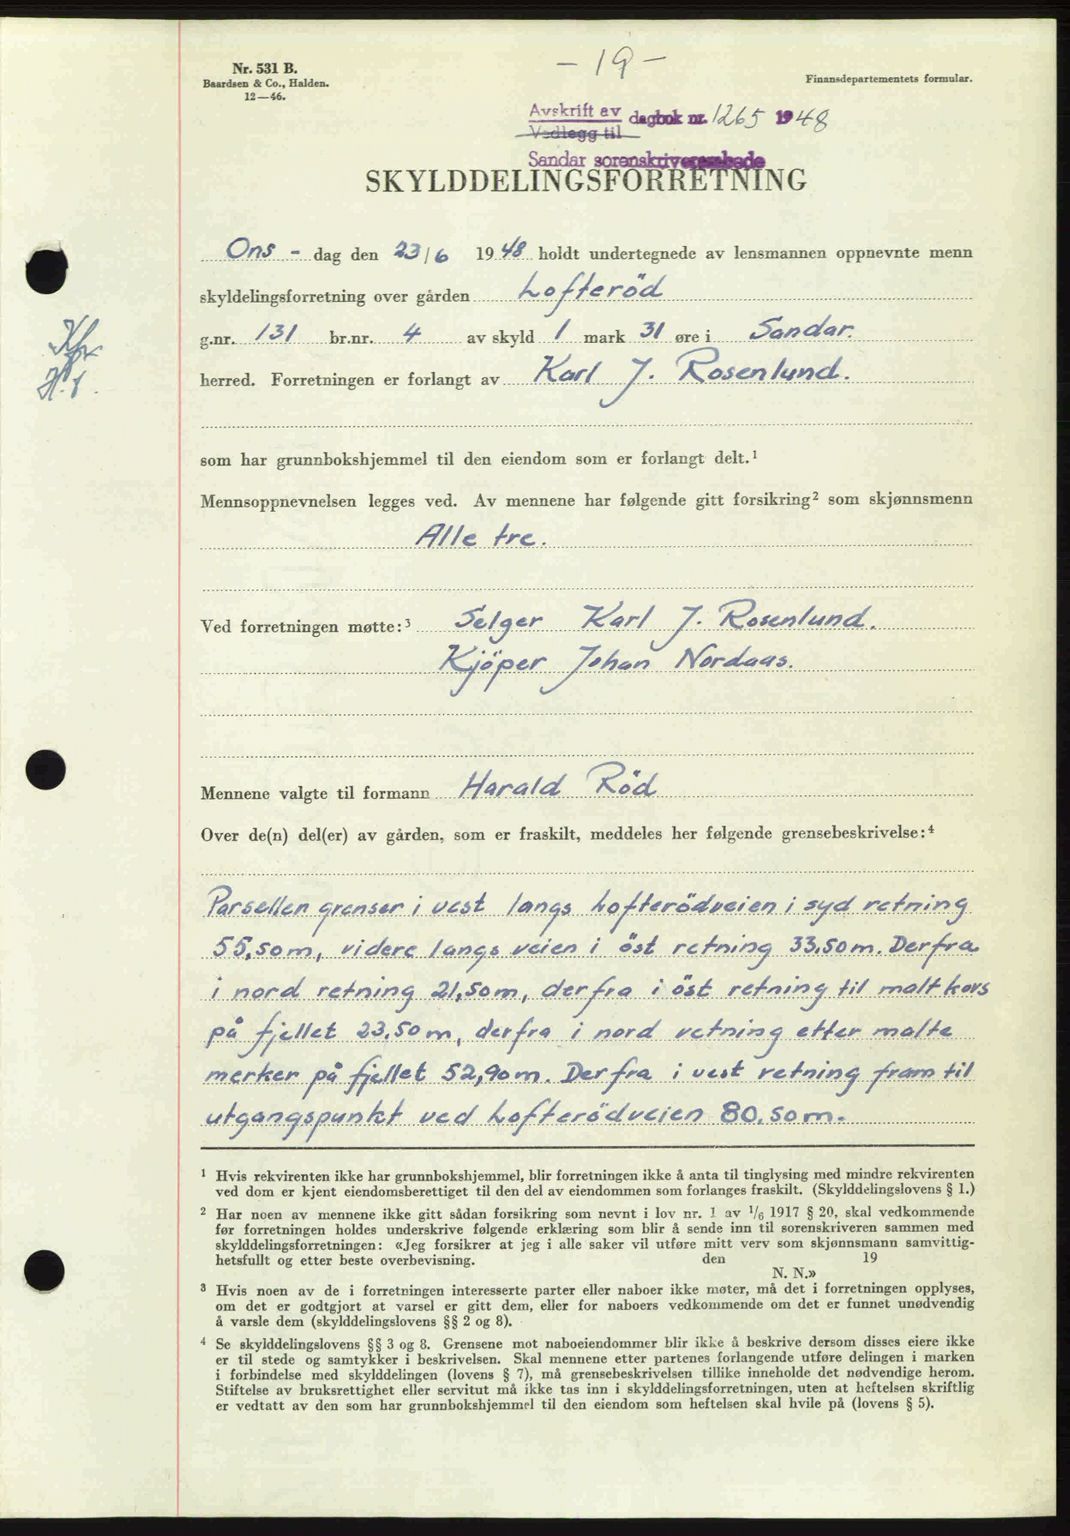 - 19 -
Nr. 531 B.
Baardsen & Co., Halden.
12—46.
Finansdepartementets formular.
Avskrift av dagbok nr. 1265 1948
Vedlegg til
Sandar sorenskriverembede
SKYLDDELINGSFORRETNING
Ons - dag den 23/6 1948 holdt undertegnede av lensmannen oppnevnte menn
skyldelingsforretning over gården Lofteröd
g.nr. 131 br.nr. 4 av skyld 1 mark 31 øre i Sandar.
herred. Forretningen er forlangt av Karl J. Rosenlund.
som har grunnbokshjemmel til den eiendom som er forlangt delt.¹
Mennsoppnevnelsen legges ved. Av mennene har følgende gitt forsikring² som skjønnsmenn
Alle tre.
Ved forretningen møtte:³ Selger Karl J. Rosenlund.
Kjöper Johan Nordaas.
Mennene valgte til formann Harald Röd
Over de(n) del(er) av gården, som er fraskilt, meddeles her følgende grensebeskrivelse:⁴
Parsellen grenser i vest langs Lofterödveien i syd retning
55,50 m, videre langs veien i öst retning 33,50 m. Derfra
i nord retning 21,50 m, derfra i öst retning til malt kors
på fjellet 23,50 m, derfra i nord retning etter malte
merker på fjellet 52,90 m. Derfra i vest retning fram til
utgangspunkt ved Lofterödveien 80,50 m.
¹ Hvis rekvirenten ikke har grunnbokshjemmel, blir forretningen ikke å anta til tinglysing med mindre rekvirenten
ved dom er kjent eiendomsberettiget til den del av eiendommen som forlanges fraskilt. (Skylddelingslovens § 1.)
² Har noen av mennene ikke gitt sådan forsikring som nevnt i lov nr. 1 av 1/6 1917 § 20, skal vedkommende
før forretningen holdes underskrive følgende erklæring som blir å sende inn til sorenskriveren sammen med
skylddelingsforretningen: «Jeg forsikrer at jeg i alle saker vil utføre mitt verv som skjønnsmann samvittig-
hetsfullt og etter beste overbevisning. den 19
N. N.»
³ Hvis noen av de i forretningen interesserte parter eller naboer ikke møter, må det i forretningen opplyses,
om det er godtgjort at varsel er gitt dem, eller for naboers vedkommende om det er funnet unødvendig
å varsle dem (skylddelingslovens §§ 2 og 8).
⁴ Se skylddelingslovens §§ 3 og 8. Grensene mot naboeiendommer blir ikke å beskrive dersom disses eiere ikke
er til stede og samtykker i beskrivelsen. Skal mennene etter partenes forlangende utføre delingen i marken
i forbindelse med skylddelingen (lovens § 7), må grensebeskrivelsen tillike inneholde det nødvendige herom.
Stiftelse av bruksrettighet eller servitut må ikke tas inn i skylddelingsforretningen, uten at heftelsen skriftlig
er vedtatt av den som har grunnbokshjemmel til den eiendom som heftelsen skal hvile på (lovens § 5).